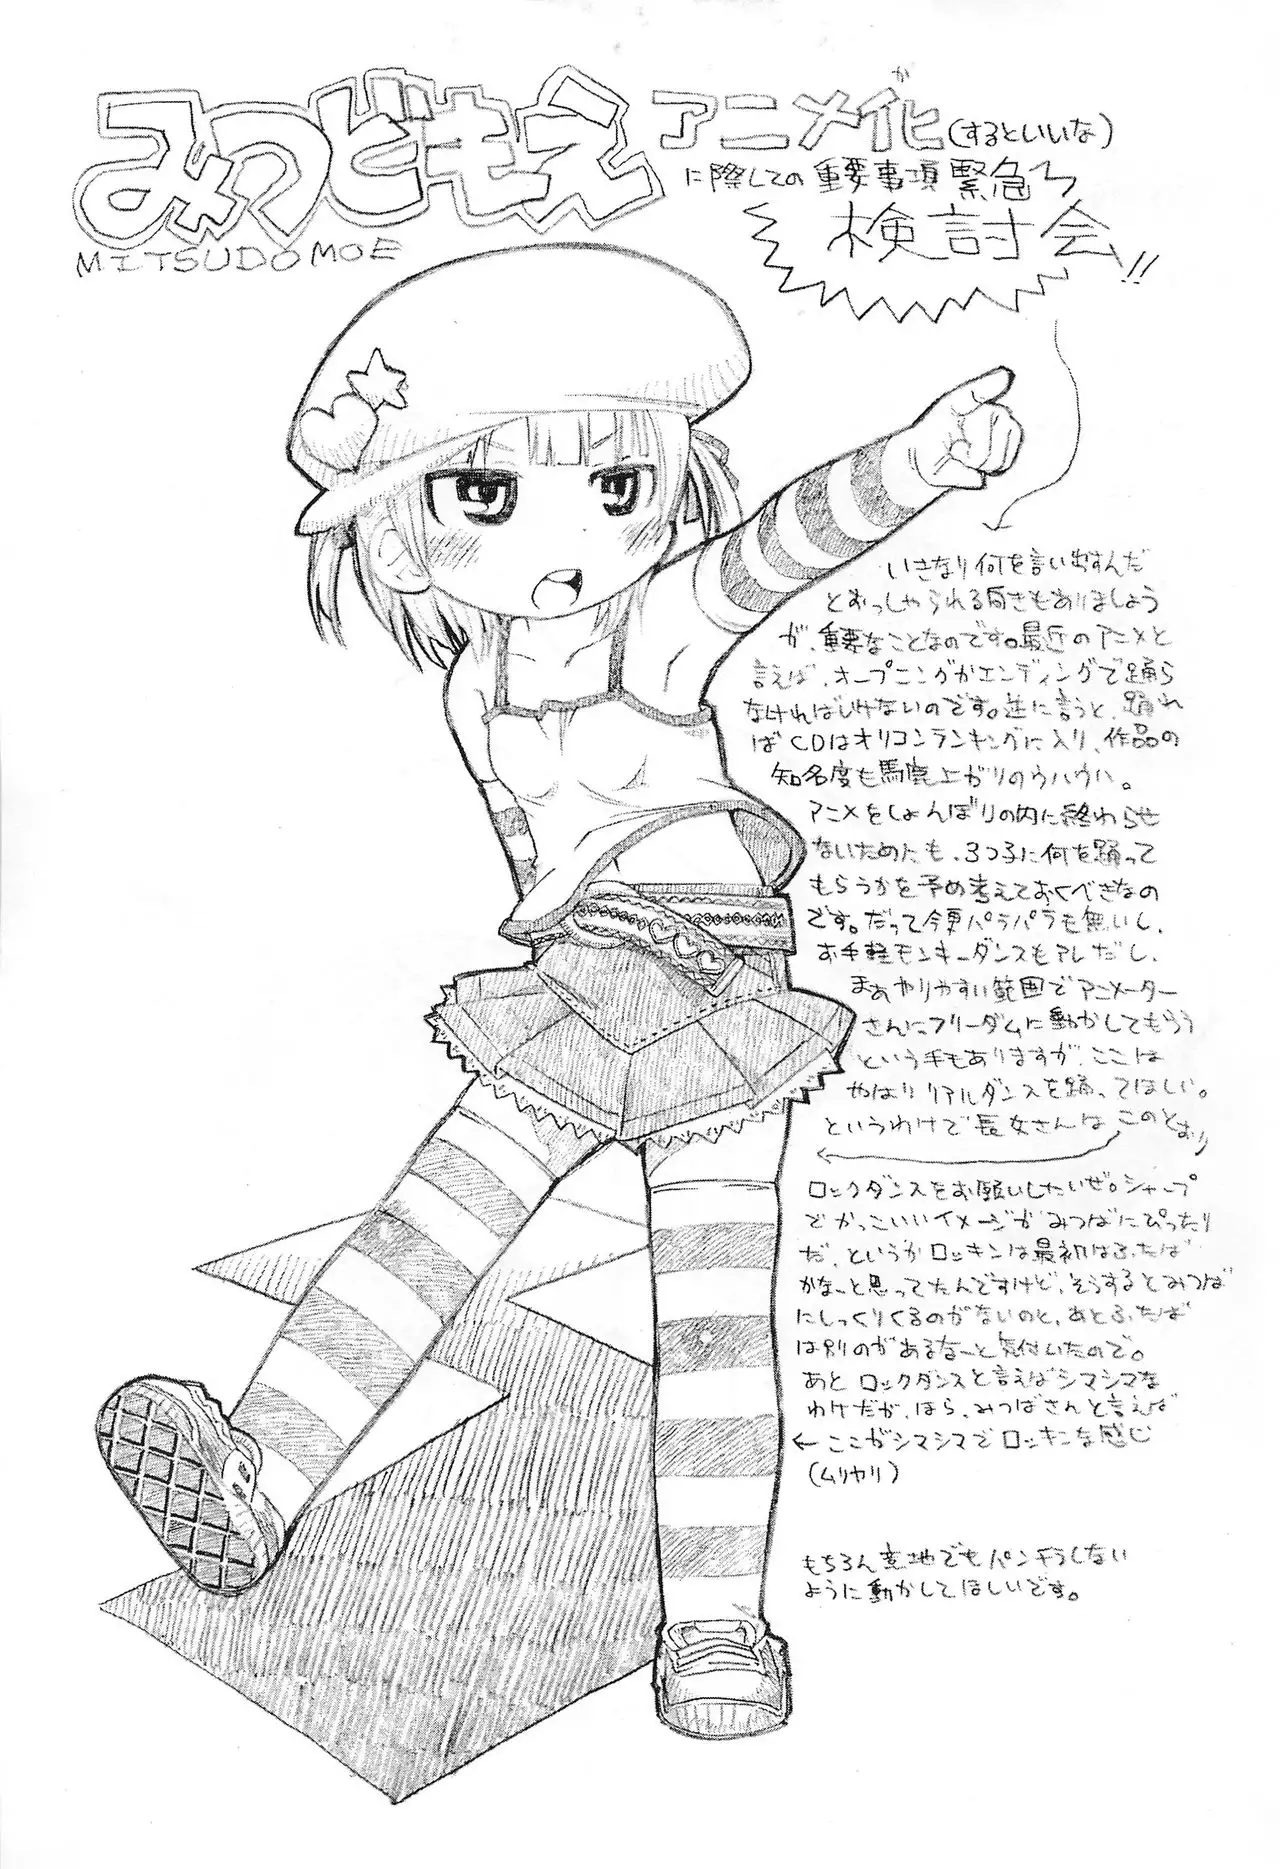 みつどもえ
MITSUDOMOE
アニメ化(するといいな)
か
に際しての重要事項緊急
検討会!!
いきなり何を言い出すんだ
とおっしゃられる向きもありましょう
が、重要なことなのです。最近のアニメと
言えば、オープニングかエンディングで踊ら
なければいけないのです。逆に言うと、踊れ
ばCDはオリコンランキングに入り、作品の
知名度も馬鹿上がりのウハウハ。
アニメをしょんぼりの内に終わらせ
ないためにも、3つ子に何を踊って
もらうかを予め考えておくべきなの
です。だって今更パラパラも無いし、
お手軽モンキーダンスもアレだし、
まぁやりやすい範囲でアニメーター
さんにフリーダムに動かしてもらう
という手もありますが、ここは
やはりリアルダンスを踊ってほしい。
というわけで長女さんは、このとおり
ロックダンスをお願いしたいぜ。シャープ
でかっこいいイメージがみつばにぴったり
だ、というかロッキンは最初はふたば
かなーと思ってたんですけど、そうするとみつば
にしっくりくるのがないのと、あとふたば
は別のがあるなーと気付いたので。
あとロックダンスと言えばシマシマな
わけだが、ほら、みつばさんと言えば
←ここがシマシマでロッキンな感じ
(ムリヤリ)
もちろん意地でもパンチラしない
ように動かしてほしいです。